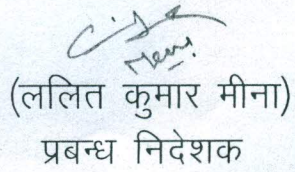 (ललित कुमार मीना)
प्रबन्ध निदेशक